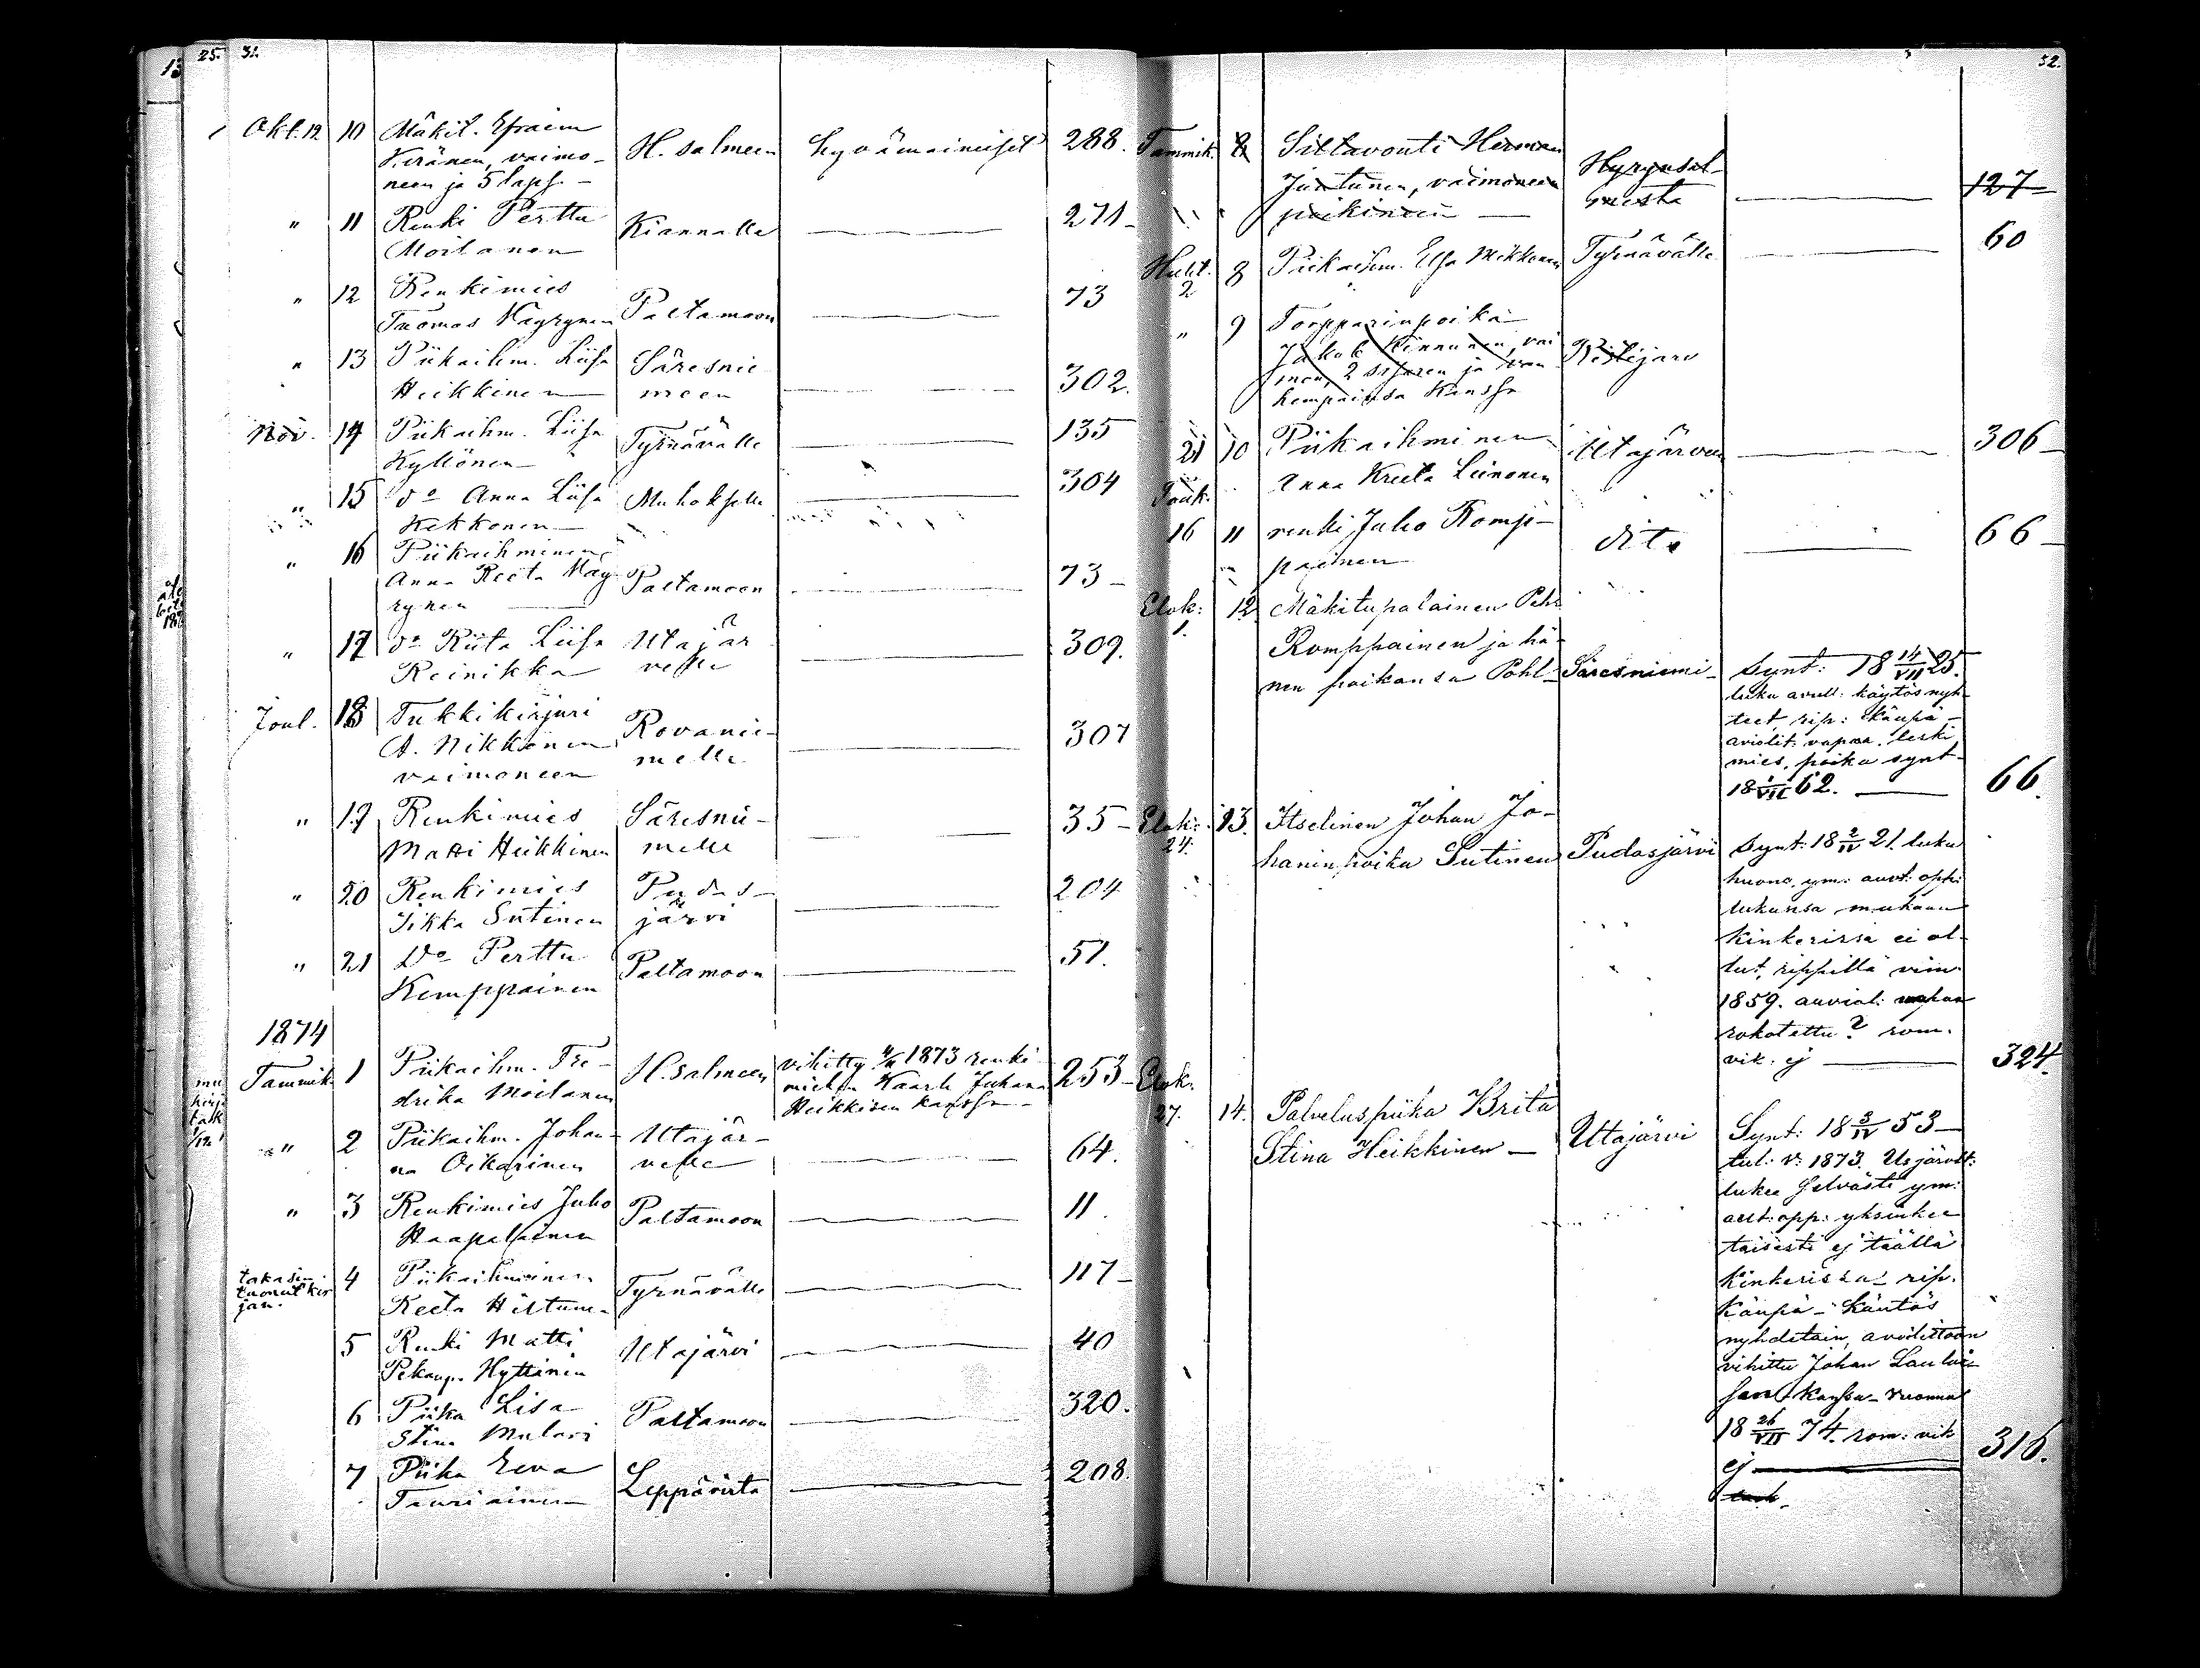 25. 31.
Okt. 12 10 Mäkit. Efraim
Keränen, vaimo-
neen ja 5 laps. –
H. salmeen hyvämaineiset 288.
" 11 Renki Perttu
Moilanen
Kiannalle 271
" 12 Renkimies
Tuomas Väyrynen Paltamoon 73
" 13 Piikaihm. Liisa
Heikkinen
Säresnie
meen 302.
Nov. 14 Piikaihm. Liisa
Kyllönen
Tyrnävälle 135
" 15 do Anna Liisa
Kekkonen
Muhokselle 304
" 16 Piikaihminen
Anna Reeta Väy
rynen
Paltamoon 73
" 17 do Riita Liisa
Reinikka
Utajär
velle 309.
Joul. 18 Tukkikirjuri
A. Nikkonen
vaimoneen
Rovanie-
melle 307
" 19 Renkimies
Matti Heikkinen
Säresnie-
melle 35
" 20 Renkimies
Iikka Sutinen
Pudas-
järvi 204
" 21 Do Perttu
Kemppainen
Paltamoon 51.
1874
Tammik. 1 Piikaihm. Fre-
drika Moilanen
H. salmeen
vihitty 1873 renki
miehen Kaarle Juhana
Heikkisen kanssa
253
" 2 Piikaihm. Johan-
na Oikarinen
Utajär-
velle 64.
" 3 Renkimies Juho
Haapalainen
Paltamoon 11.
takasin
tuonut kir
jan.
4 Piikaihminen
Reeta Hiltunen
Tyrnävälle 117
5 Renki Matti
Pekanp. Hyttinen
Utajärvi 40
6 Piika Lisa
Stina Mulari
Paltamoon 320.
7 Piika Eeva
Tauriainen
Leppävirta 208.
52.
Tammik. 8 Siltavouti Herman
Juntunen, vaimoneen
poikineen
Hyrynsal-
mesta 127
Huht.
2 8 Piikaihm. Elsa Mikkonen Tyrnävälle 60
" 9 Torpparinpoika
Jakob Kinnunen, vai
mon, 2 sisaren ja
kumpainsa kanssa
Ristijärv
21 10 Piikaihminen
Anna Kreeta Leinonen
Utajärven 306
Touk.
16 11 renki Juho Romp-
painen
dito 66
Elok:
1. 12 Mäkitupalainen Pehr
Romppainen ja hä-
nen poikansa Pohl
Säresniemi
Synt: 18 14/VII 25.
luku avull: käytös nyh-
teet, rip: käupä –
aviolit: vapaa. leski
mies, poika synt
18 /VII 62. 66.
Elok:
24. 13. Itselinen Johan Jo-
haninpoika Sutinen
Pudasjärvi
Synt: 18 2/IV 21. luku
huono, ym: auvt: oppi
lukunsa mukaan
kinkerissa ei ol-
lut, rippillä viim
1859. auviol: vapaa
rokotettu? rom.
vik. ej 324.
Elok.
27. 14. Palveluspiika Brita
Stina Heikkinen –
Utajärvi
Synt: 18 2/IV 53 –
tul: v: 1873. Utajärvelt:
lukee selvästi ym:
aut: opp: yksinker
taisesti ej täällä
kinkerissa – rip.
käupä – käutös
nyhdetain, aviolittoon
vihittu Johan
kanssa – vuonna
18 26/VII 74. rom: vik
ej 316.